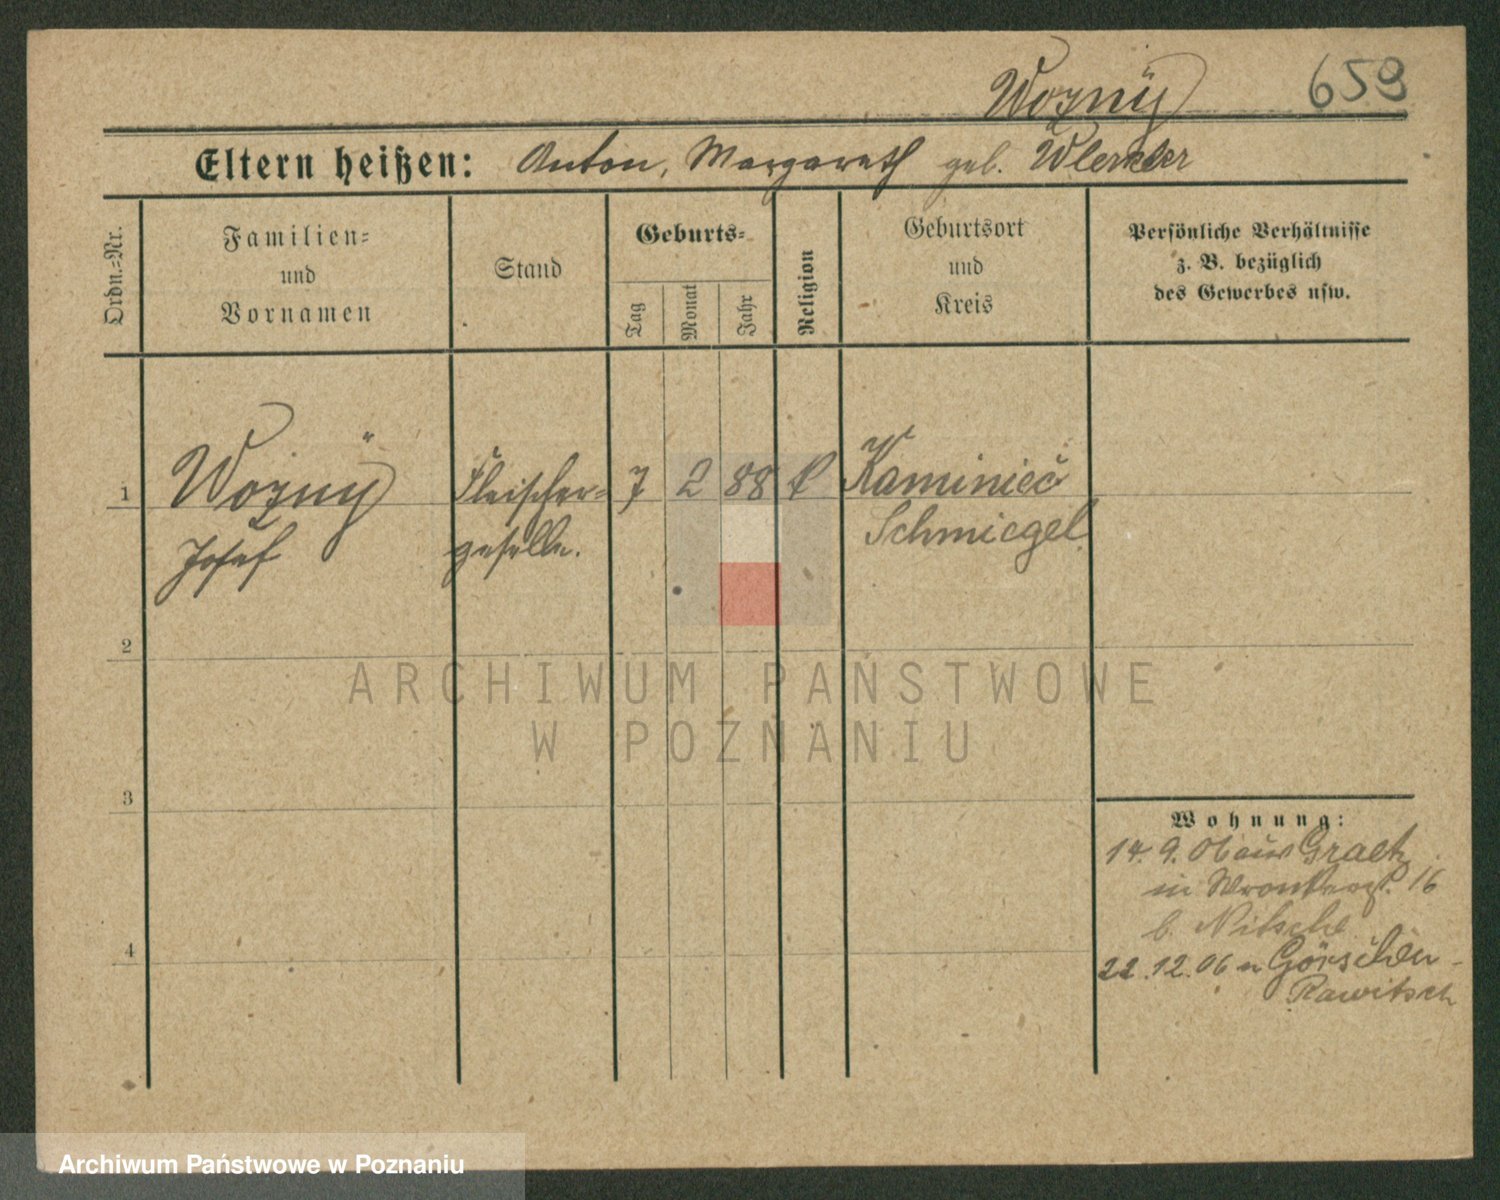 Woznÿ 659
Eltern heißen: Anton, Margareth geb.
Ordn.-Nr.
Familien-
und
Vornamen
Stand
Geburts-
Tag
Monat
Jahr
Religion
Geburtsort
und
Kreis
Persönliche Verhältnisse
z. B. bezüglich
des Gewerbes usw.
1 Woznÿ Fleischer- 7 2 88 k Kaminiec
Josef geselle. Schmiegel
2
3
4
Wohnung:
14. 9. 06 aus Graetz
in Wronkerst. 16
b. Nitsche
22. 12. 06 n Görschen-
Rawitsch
ARCHIWUM PAŃSTWOWE
W POZNANIU
Archiwum Państwowe w Poznaniu